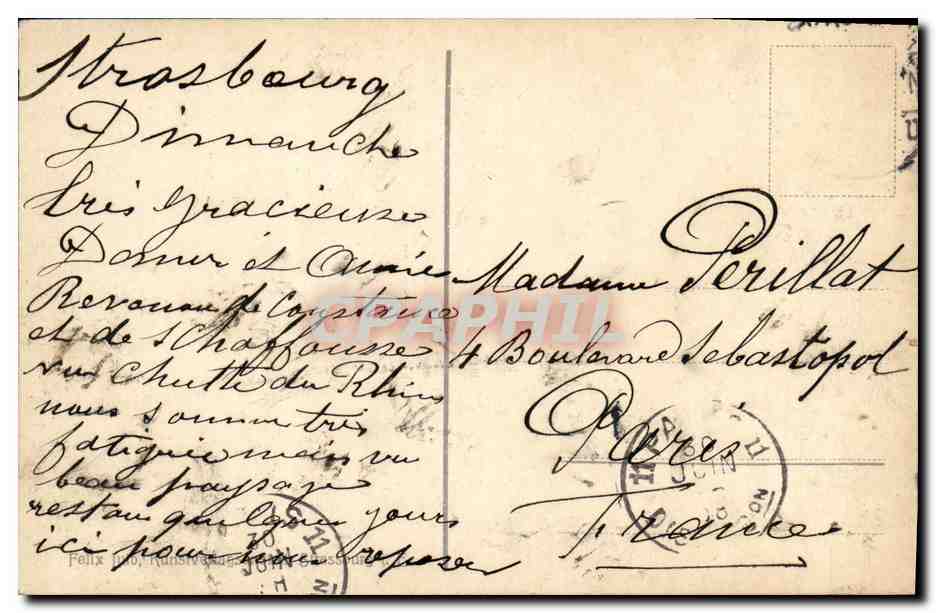 Strasbourg
Dimanche
très gracieuse
Dame et Amie
Revenons de Constance
et de Schaffousse
vu Chutte du Rhin
nous sommes très
fatiguée mais vu
beau paysage
restons quelques jours
ici pour nous reposer
Madame Périllat
4 Boulevard Sebastopol
Paris
France
CPAPHIL
Felix Luib, Kunstverlag, Strassburg
11
JUIN
11
JUIN